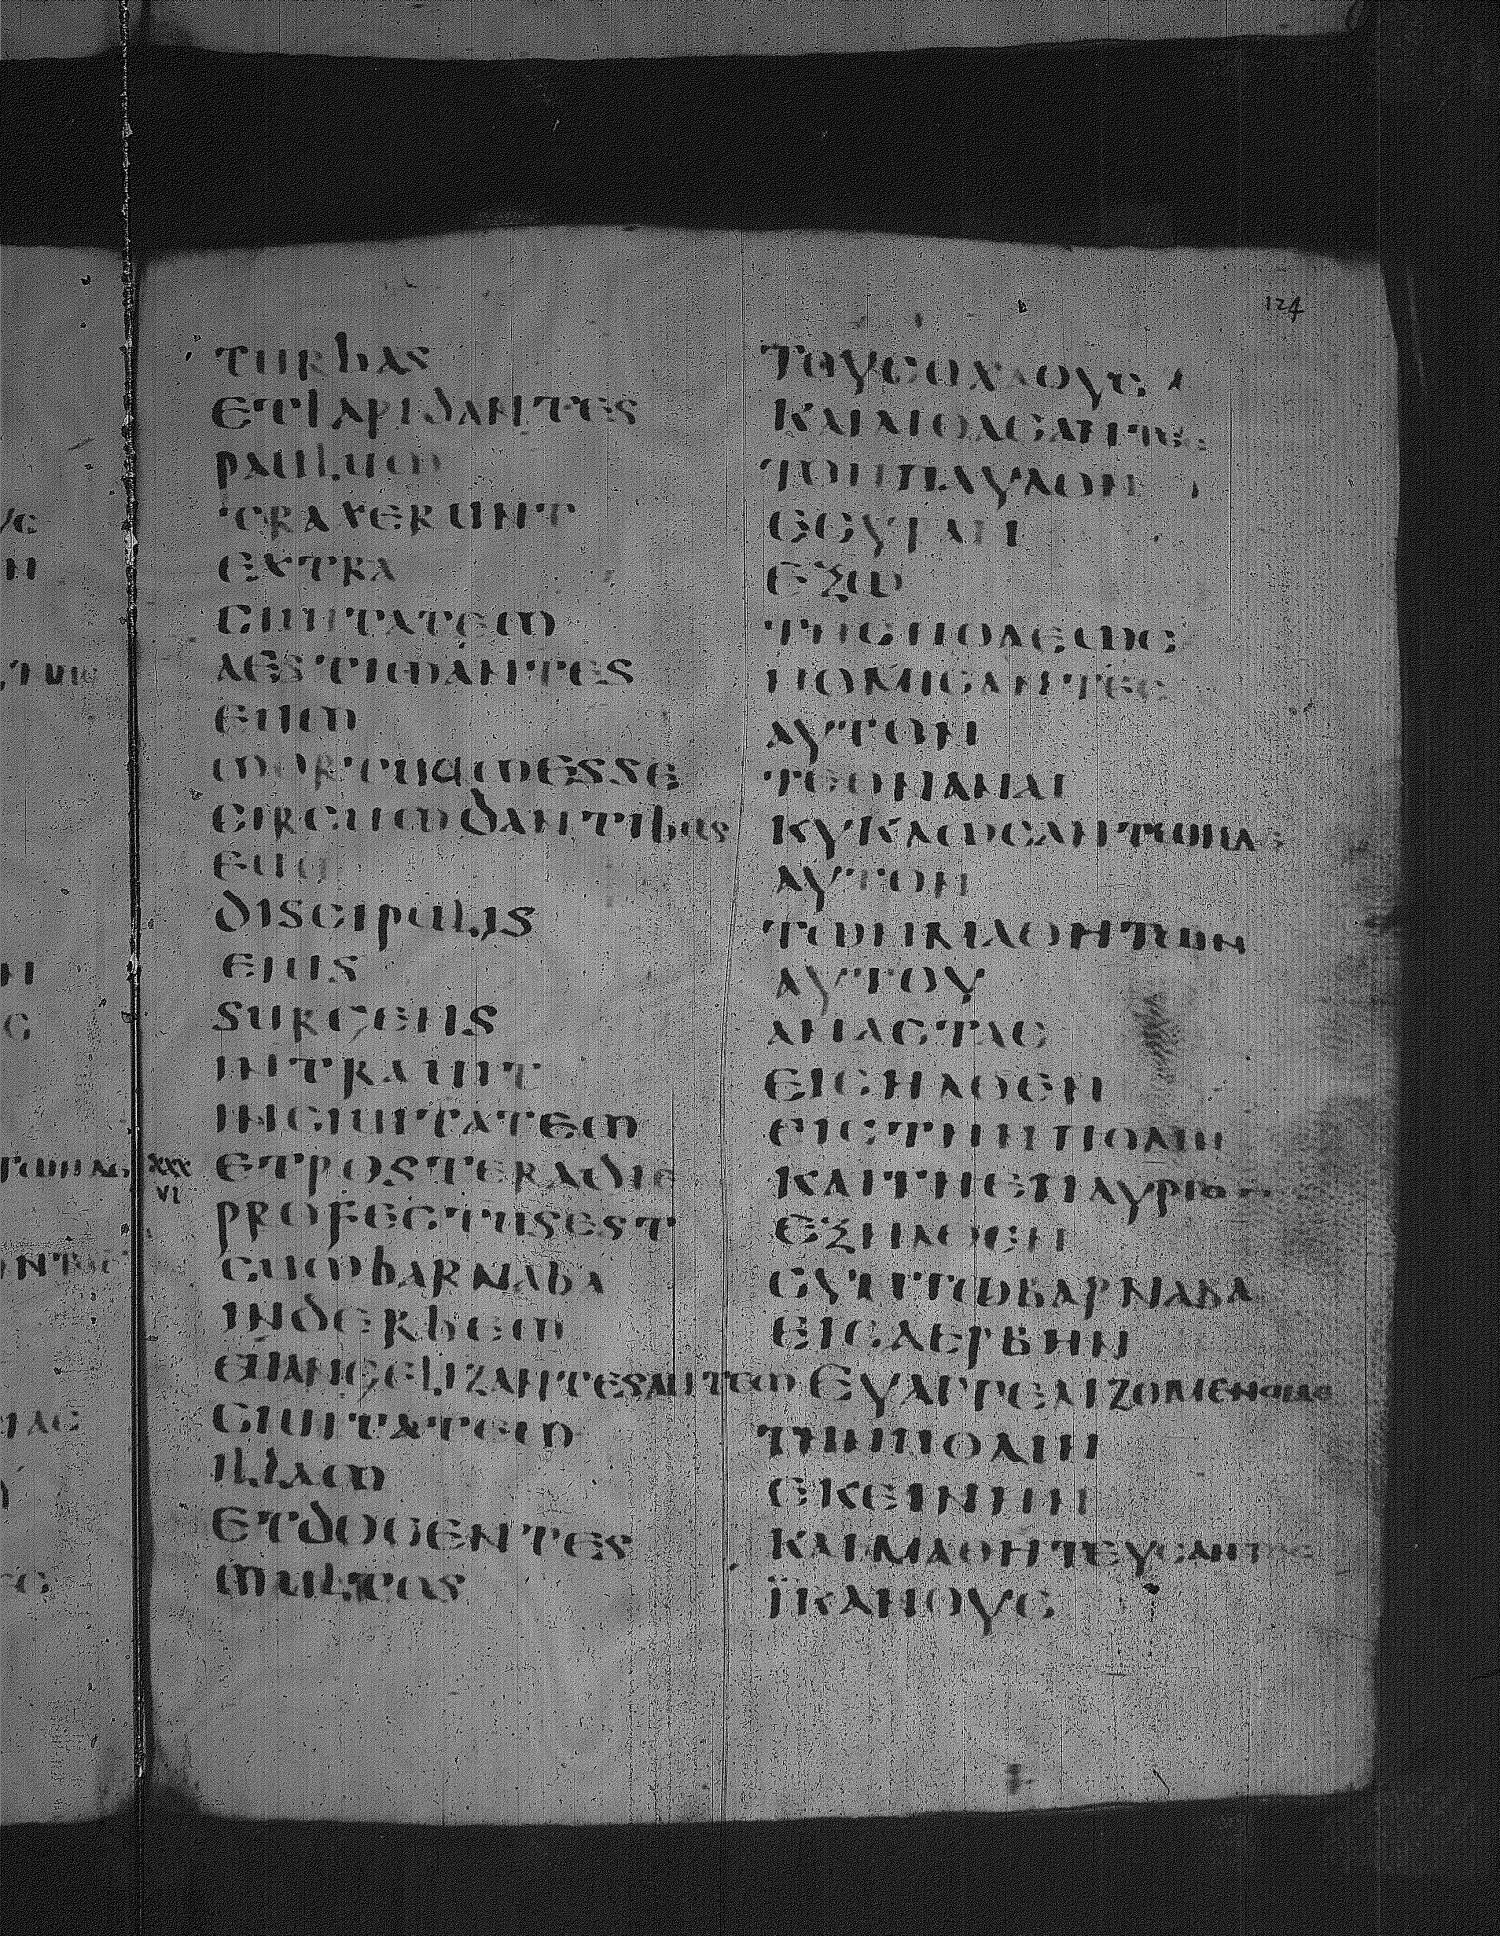 124
turbas
et lapidantes
paulum
traxerunt
extra
ciuitatem
aestimantes
eum
mortuum esse
circumdantibus
eum
discipulis
eius
surgens
intrauit
in ciuitatem
XXX
VI
et postera die
profectus est
cum barnaba
in derbem
euangelizantes autem
ciuitatem
illam
et docentes
multos
ΤΟΥС ΟΧΛΟΥС
ΚΑΙ ΛΙΘΑСΑΝΤΕС
ΤΟΝ ΠΑΥΛΟΝ
ЄСΥΡΑΝ
ЄΞω
ΤΗС ΠΟΛЄωС
ΝΟΜΙСΑΝΤЄС
ΑΥΤΟΝ
ΤЄΘΝΑΝΑΙ
ΚΥΚΛωСΑΝΤωΝ ΔЄ
ΑΥΤΟΝ
ΤωΝ ΜΑΘΗΤωΝ
ΑΥΤΟΥ
ΑΝΑСΤΑС
ЄΙСΗΛΘЄΝ
ЄΙС ΤΗΝ ΠΟΛΙΝ
ΚΑΙ ΤΗ ЄΠΑΥΡΙΟΝ
ЄΞΗΛΘЄΝ
СΥΝ Τω ΒΑΡΝΑΒΑ
ЄΙС ΔЄΡΒΗΝ
ЄΥΑΓΓЄΛΙΖΟΜЄΝΟΙ ΔЄ
ΤΗΝ ΠΟΛΙΝ
ЄΚЄΙΝΗΝ
ΚΑΙ ΜΑΘΗΤЄΥСΑΝΤЄС
ΪΚΑΝΟΥС